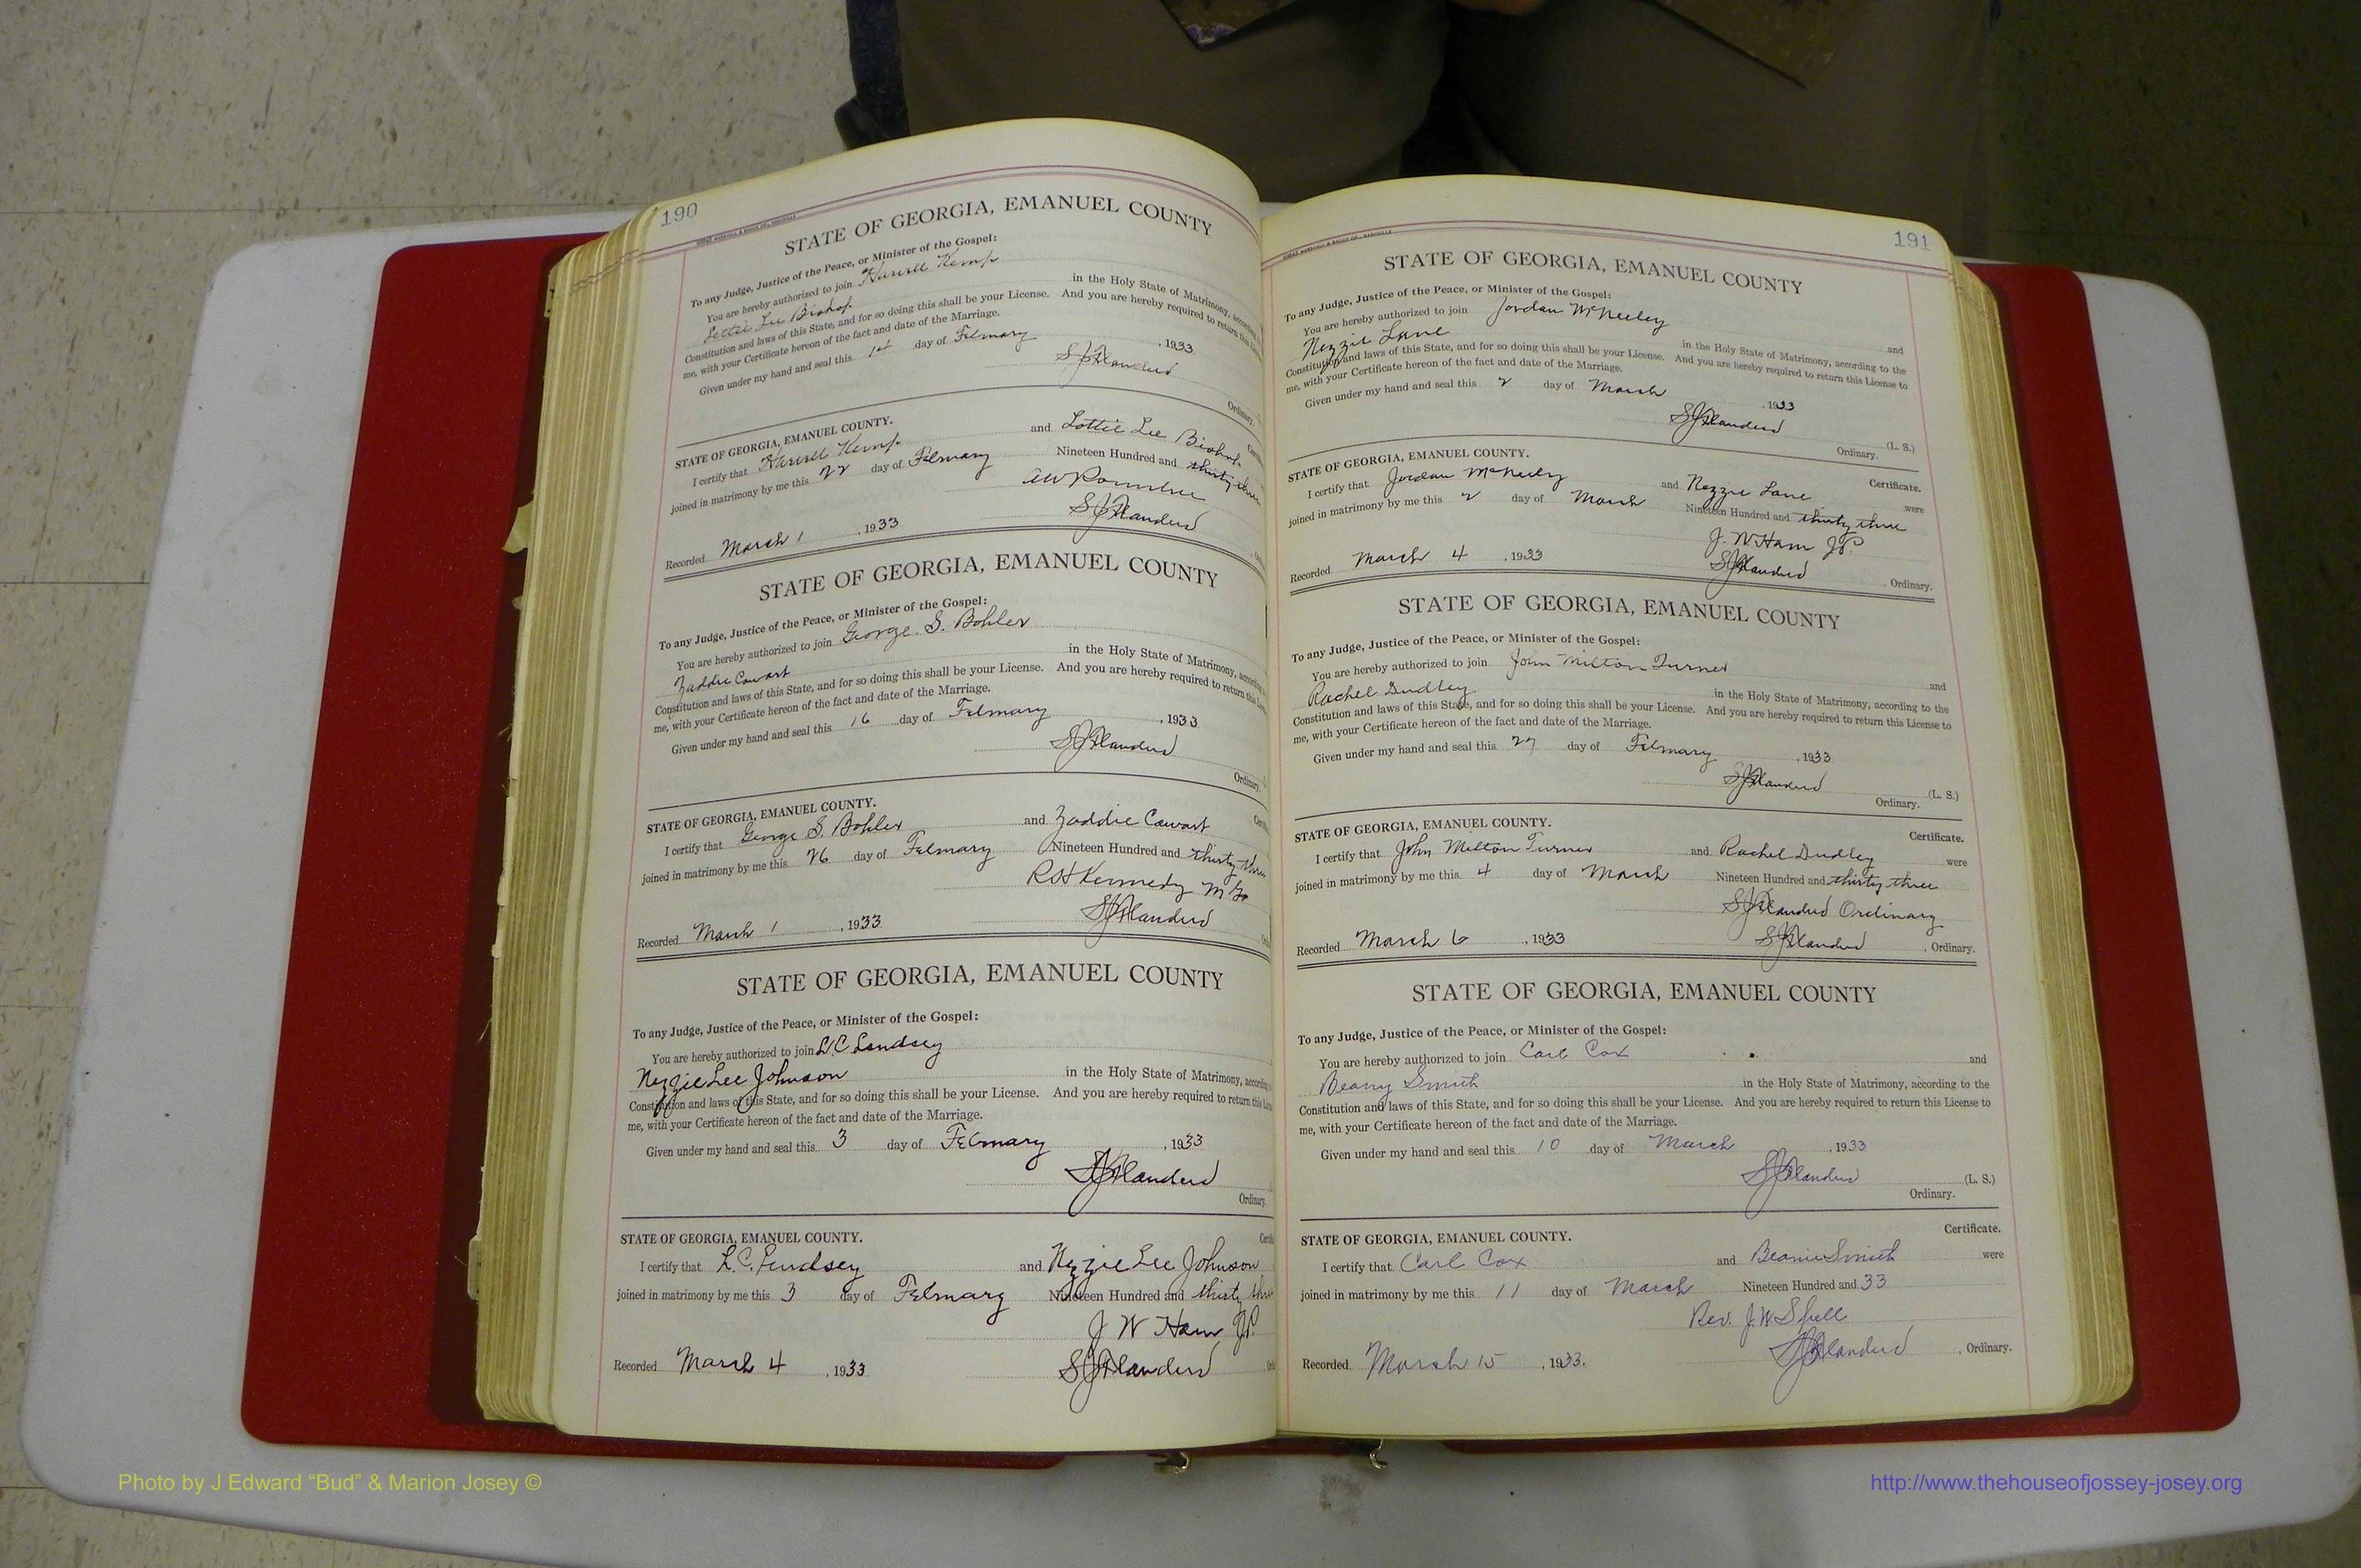 190
STATE OF GEORGIA, EMANUEL COUNTY
To any Judge, Justice of the Peace, or Minister of the Gospel:
You are hereby authorized to join Harrell Kemp
Lottie Lee Bishop in the Holy State of Matrimony,
Constitution and laws of this State, and for so doing this shall be your License. And you are hereby required to return this
me, with your Certificate hereon of the fact and date of the Marriage.
Given under my hand and seal this day of February , 1933
S J Flanders
Ordinary.
STATE OF GEORGIA, EMANUEL COUNTY.
I certify that Harrell Kemp and Lottie Lee Bishop
joined in matrimony by me this 22 day of February Nineteen Hundred and thirty three
A W Rountree
Recorded March 1 , 1933 S J Flanders
STATE OF GEORGIA, EMANUEL COUNTY
To any Judge, Justice of the Peace, or Minister of the Gospel:
You are hereby authorized to join George S. Bohler
Zaddie Cowart in the Holy State of Matrimony,
Constitution and laws of this State, and for so doing this shall be your License. And you are hereby required to return this
me, with your Certificate hereon of the fact and date of the Marriage.
Given under my hand and seal this 16 day of February , 1933
S J Flanders
Ordinary.
STATE OF GEORGIA, EMANUEL COUNTY.
I certify that George S. Bohler and Zaddie Cowart
joined in matrimony by me this 26 day of February Nineteen Hundred and thirty three
R H Kennedy M G
Recorded March 1 , 1933 S J Flanders
STATE OF GEORGIA, EMANUEL COUNTY
To any Judge, Justice of the Peace, or Minister of the Gospel:
You are hereby authorized to join L. C. Lindsey
Nezzie Lee Johnson in the Holy State of Matrimony, according
Constitution and laws of this State, and for so doing this shall be your License. And you are hereby required to return this
me, with your Certificate hereon of the fact and date of the Marriage.
Given under my hand and seal this 3 day of February , 1933
S J Flanders
Ordinary.
STATE OF GEORGIA, EMANUEL COUNTY.
I certify that L. C. Lindsey and Nezzie Lee Johnson
joined in matrimony by me this 3 day of February Nineteen Hundred and thirty
J W Ham JP.
Recorded March 4 , 1933 S J Flanders
191
STATE OF GEORGIA, EMANUEL COUNTY
To any Judge, Justice of the Peace, or Minister of the Gospel:
You are hereby authorized to join Jordan McNeeley and
Nezzie Lane in the Holy State of Matrimony, according to the
Constitution and laws of this State, and for so doing this shall be your License. And you are hereby required to return this License to
me, with your Certificate hereon of the fact and date of the Marriage.
Given under my hand and seal this 2 day of March , 1933
S J Flanders (L. S.)
Ordinary.
STATE OF GEORGIA, EMANUEL COUNTY. Certificate.
I certify that Jordan McNeely and Nezzie Lane were
joined in matrimony by me this 2 day of March Nineteen Hundred and thirty three
J. W Ham JP.
Recorded March 4 , 1933 S J Flanders , Ordinary.
STATE OF GEORGIA, EMANUEL COUNTY
To any Judge, Justice of the Peace, or Minister of the Gospel:
You are hereby authorized to join John Milton Turner and
Rachel Dudley in the Holy State of Matrimony, according to the
Constitution and laws of this State, and for so doing this shall be your License. And you are hereby required to return this License to
me, with your Certificate hereon of the fact and date of the Marriage.
Given under my hand and seal this 27 day of February , 1933
S J Flanders (L. S.)
Ordinary.
STATE OF GEORGIA, EMANUEL COUNTY. Certificate.
I certify that John Milton Turner and Rachel Dudley were
joined in matrimony by me this 4 day of March Nineteen Hundred and thirty three
S J Flanders Ordinary
Recorded March 6 , 1933 S J Flanders , Ordinary.
STATE OF GEORGIA, EMANUEL COUNTY
To any Judge, Justice of the Peace, or Minister of the Gospel:
You are hereby authorized to join Carl Cox and
Beany Smith in the Holy State of Matrimony, according to the
Constitution and laws of this State, and for so doing this shall be your License. And you are hereby required to return this License to
me, with your Certificate hereon of the fact and date of the Marriage.
Given under my hand and seal this 10 day of March , 1933
S J Flanders (L. S.)
Ordinary.
STATE OF GEORGIA, EMANUEL COUNTY. Certificate.
I certify that Carl Cox and Beanie Smith were
joined in matrimony by me this 11 day of March Nineteen Hundred and 33
Rev. J. W Spell
Recorded March 15 , 1933. S J Flanders , Ordinary.
Photo by J Edward “Bud” & Marion Josey ©
http://www.thehouseofjossey-josey.org